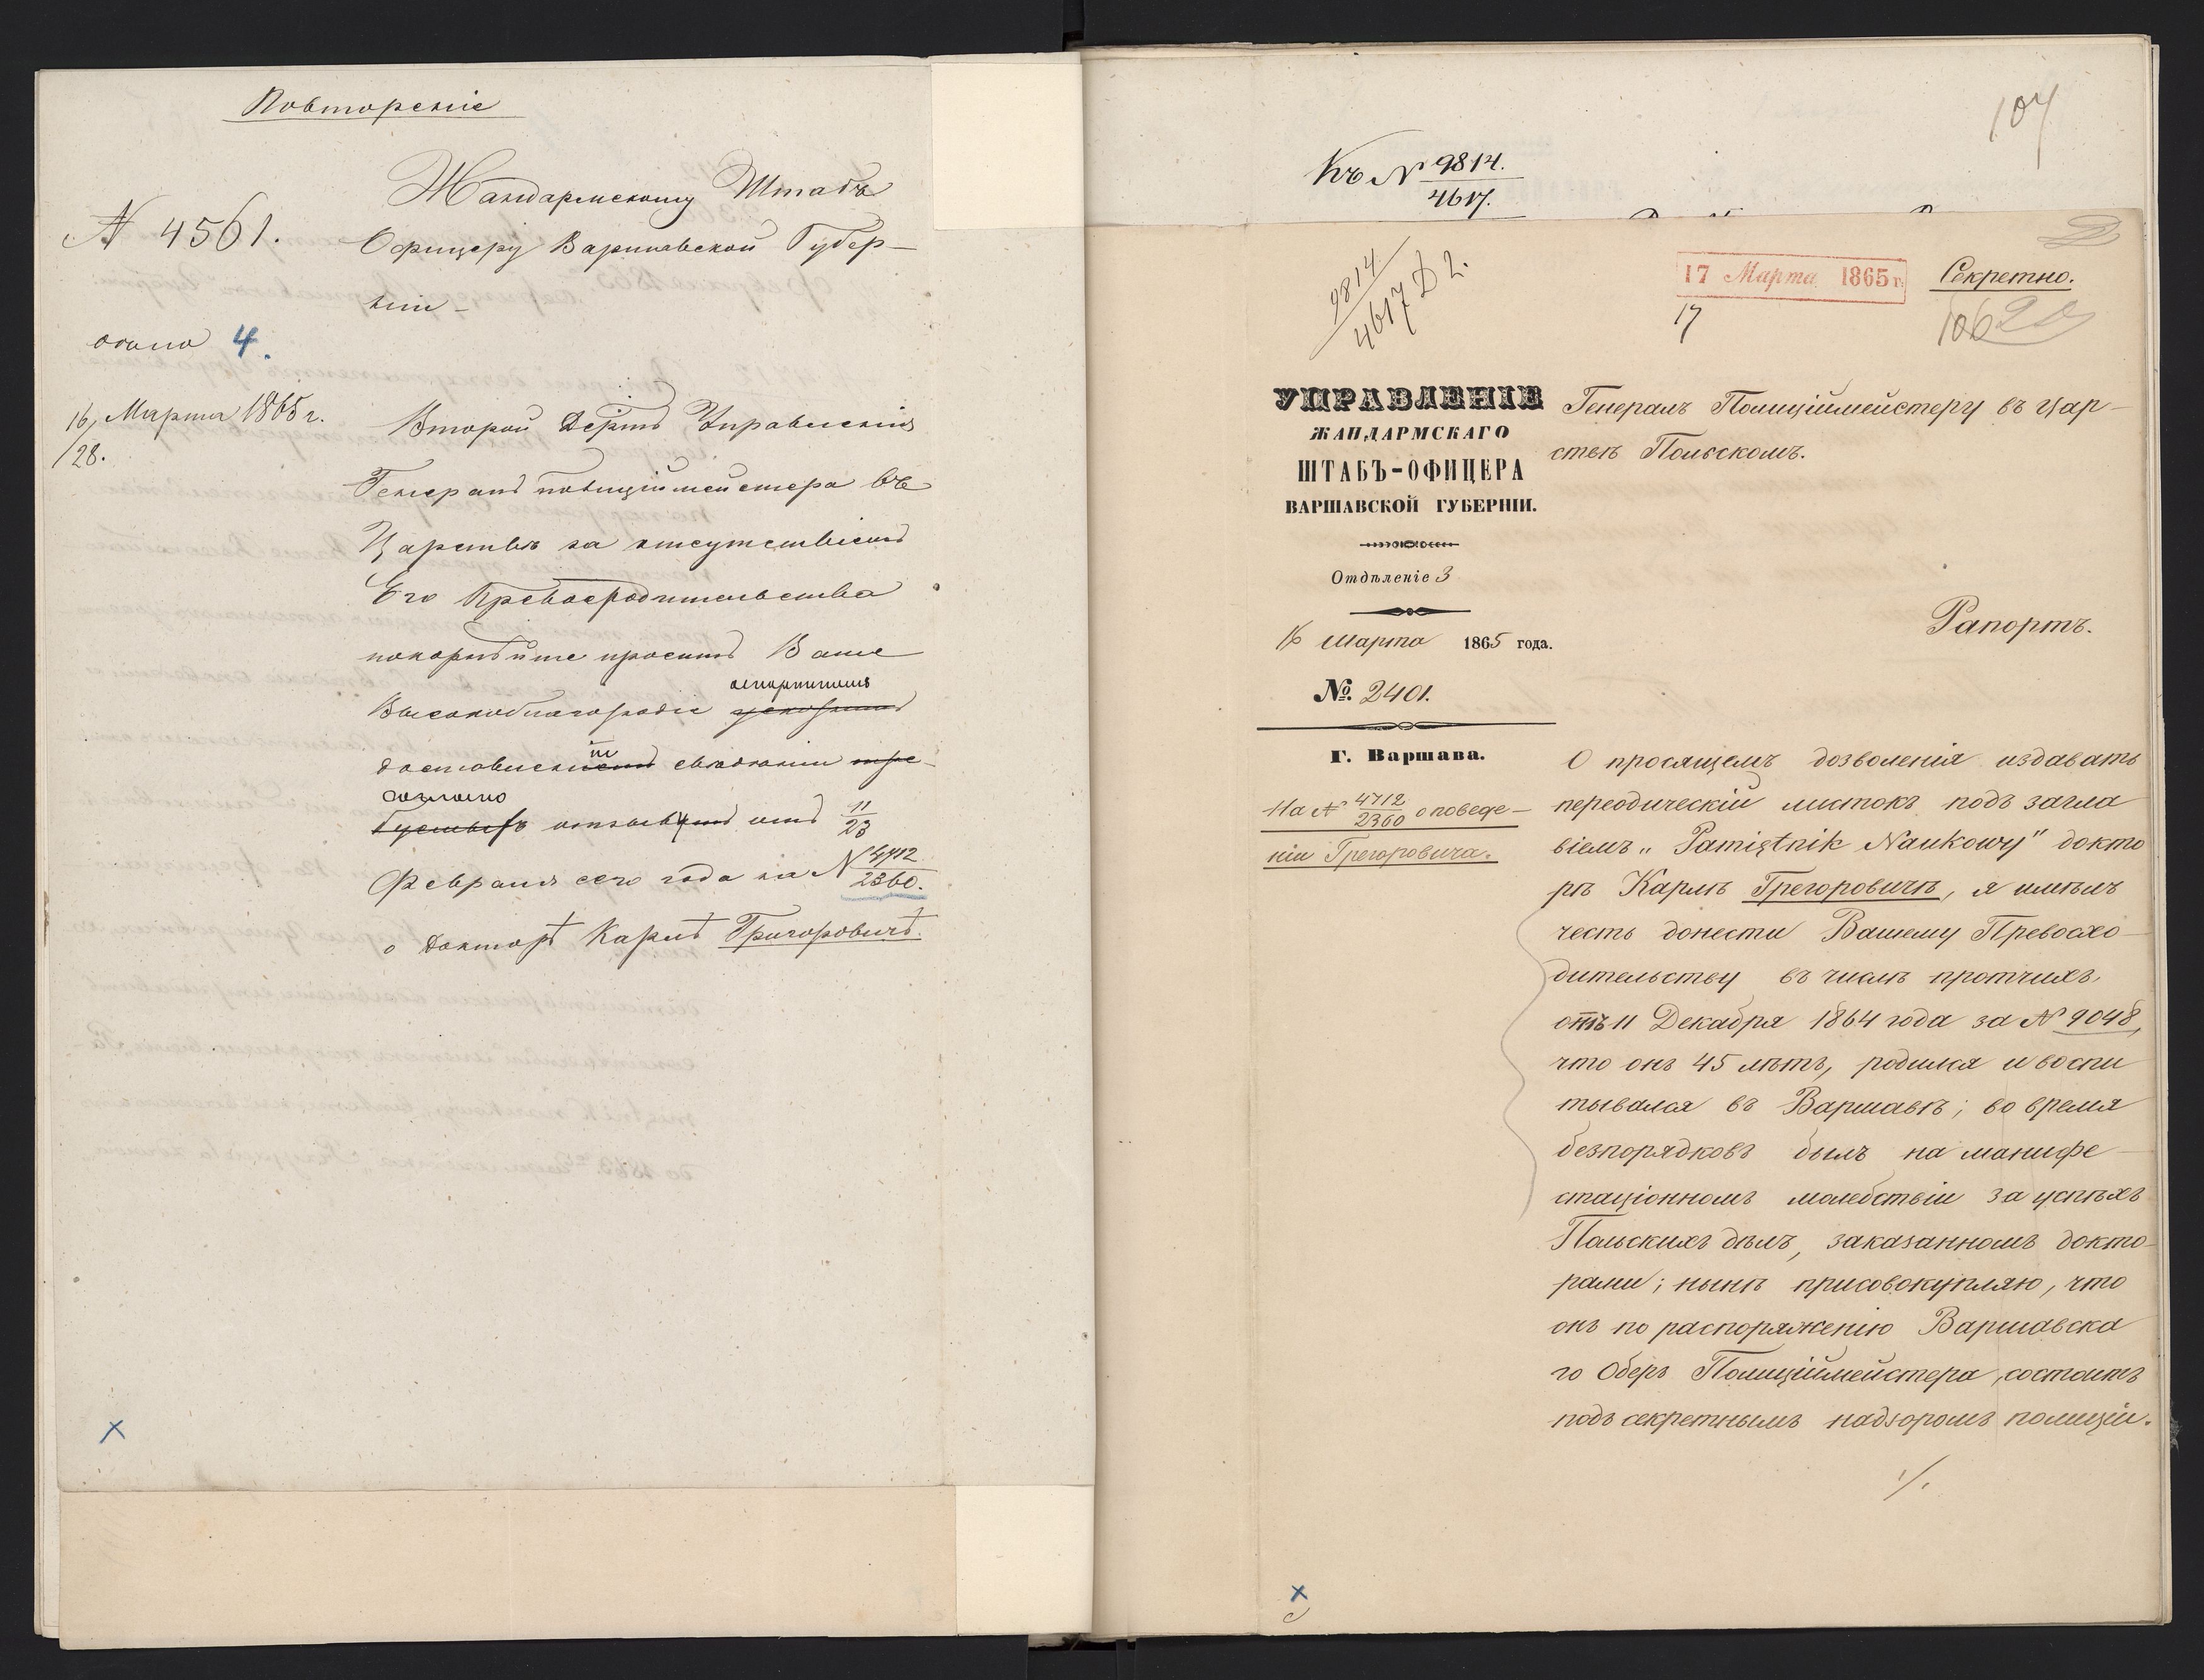 Повтореніе
Жандармскому Штабъ
№ 4561.
Офицеру Варшавской Губер-
ніи -
4.
16/28. Марта 1865 г.
Второй Управленія
Генералъ полиціймейстера въ
Царствѣ за отсутствіемъ
Его Превосходительства
покорнѣйше проситъ Ваше
Высокоблагородіе
свѣдѣніи
согласно
отъ 11/23
Февраля сего года за № 4712/2360.
о Докторѣ Карлѣ Григоровичѣ.
104
Къ № 9814./4617.
9814/4617 Д 2.
17 Марта 1865 г.
Секретно.
17
106
УПРАВЛЕНІЕ
ЖАНДАРМСКАГО
ШТАБЪ-ОФИЦЕРА
ВАРШАВСКОЙ ГУБЕРНІИ.
Отдѣленіе 3
16 Марта 1865 года.
№. 2401.
Г. Варшава.
На № 4712/2360 о поведе-
ніи Грегоровича.
Генералъ Полиціймейстеру въ Цар-
ствѣ Польскомъ.
Рапортъ.
О просящемъ дозволенія издавать
переодическій листокъ подъ загла
віемъ „Pamiętnik Naukowy" докто
рѣ Карлѣ Грегоровичѣ, я имѣлъ
честь донести Вашему Превосхо-
дительству въ числѣ протчихъ
отъ 11 Декабря 1864 года за № 9048,
что онъ 45 лѣтъ, родился и воспи
тывался въ Варшавѣ; во время
безпорядковъ былъ на манифе-
стаціонномъ молебствіи за успѣхъ
Польскихъ дѣлъ, заказанномъ докто-
рами; нынѣ присовокупляю, что
онъ по распоряженію Варшавска
го Оберъ Полиціймейстера, состоитъ
подъ секретнымъ надзоромъ полиціи.